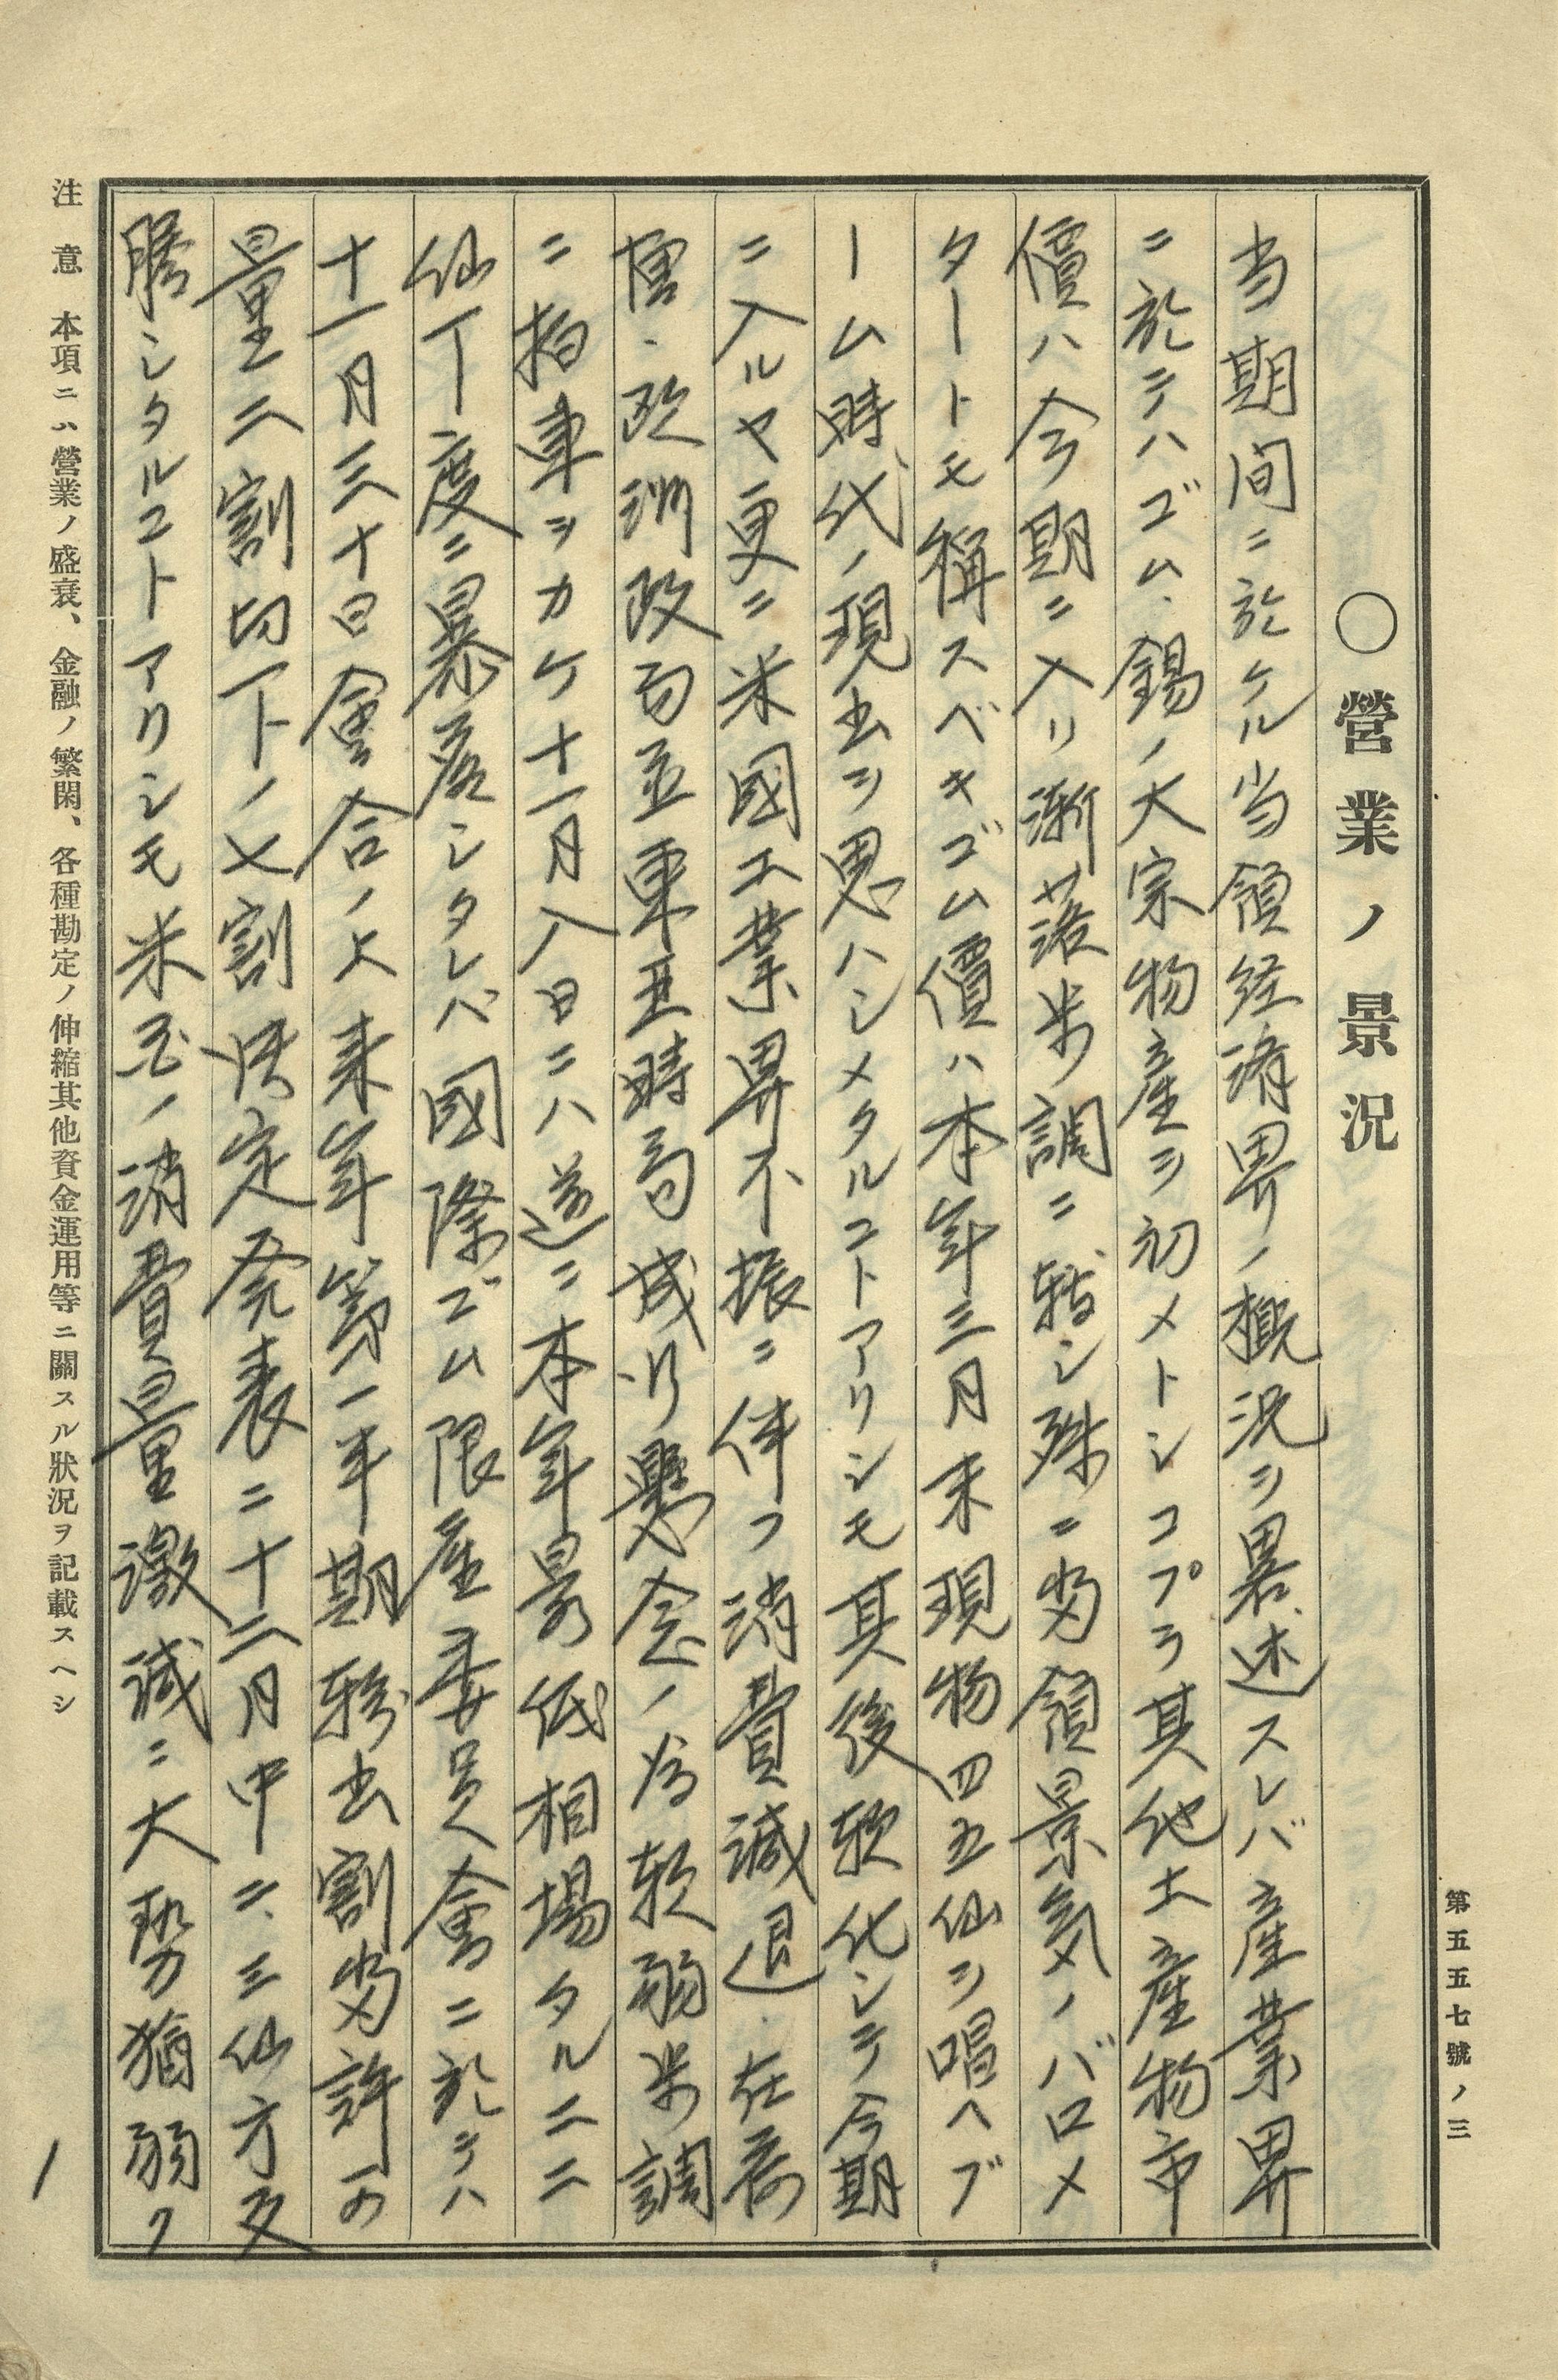 第五五七號ノ三
〇營業ノ景況
当期間ニ於ケル当領経済界ノ概況ヲ畧述スレバ産業界
ニ於テハゴム、錫ノ大宗物産ヲ初メトシコプラ其他土産物市
價ハ今期ニ入リ漸落歩調ニ転シ殊ニ当領景気ノバロメ
タートモ稱スベキゴム價ハ本年三月末現物四五仙ヲ唱ヘブ
ーム時代ノ現出ヲ思ハシメタルコトアリシモ其後軟化シテ今期
ニ入ルヤ更ニ米國工業界不振ニ伴フ消費減退、在荷
増、欧洲政局並東亜時局成行懸念ノ為軟弱歩調
ニ拍車ヲカケ十一月八日ニハ遂ニ本年最低相場タル二二
仙丁度ニ暴落シタレバ國際ゴム限産委員會ニ於テハ
十一月三十日會合ノ上来年第一半期輸出割当許可
量二割切下ノ七割決定発表ニ十二月中ニ、三仙方反
騰シタルコトアリシモ米国ノ消費量激減ニ大勢猶弱ク
注意 本項ニハ營業ノ盛衰、金融ノ繁閑、各種勘定ノ伸縮其他資金運用等ニ關スル狀況ヲ記載スヘシ
1